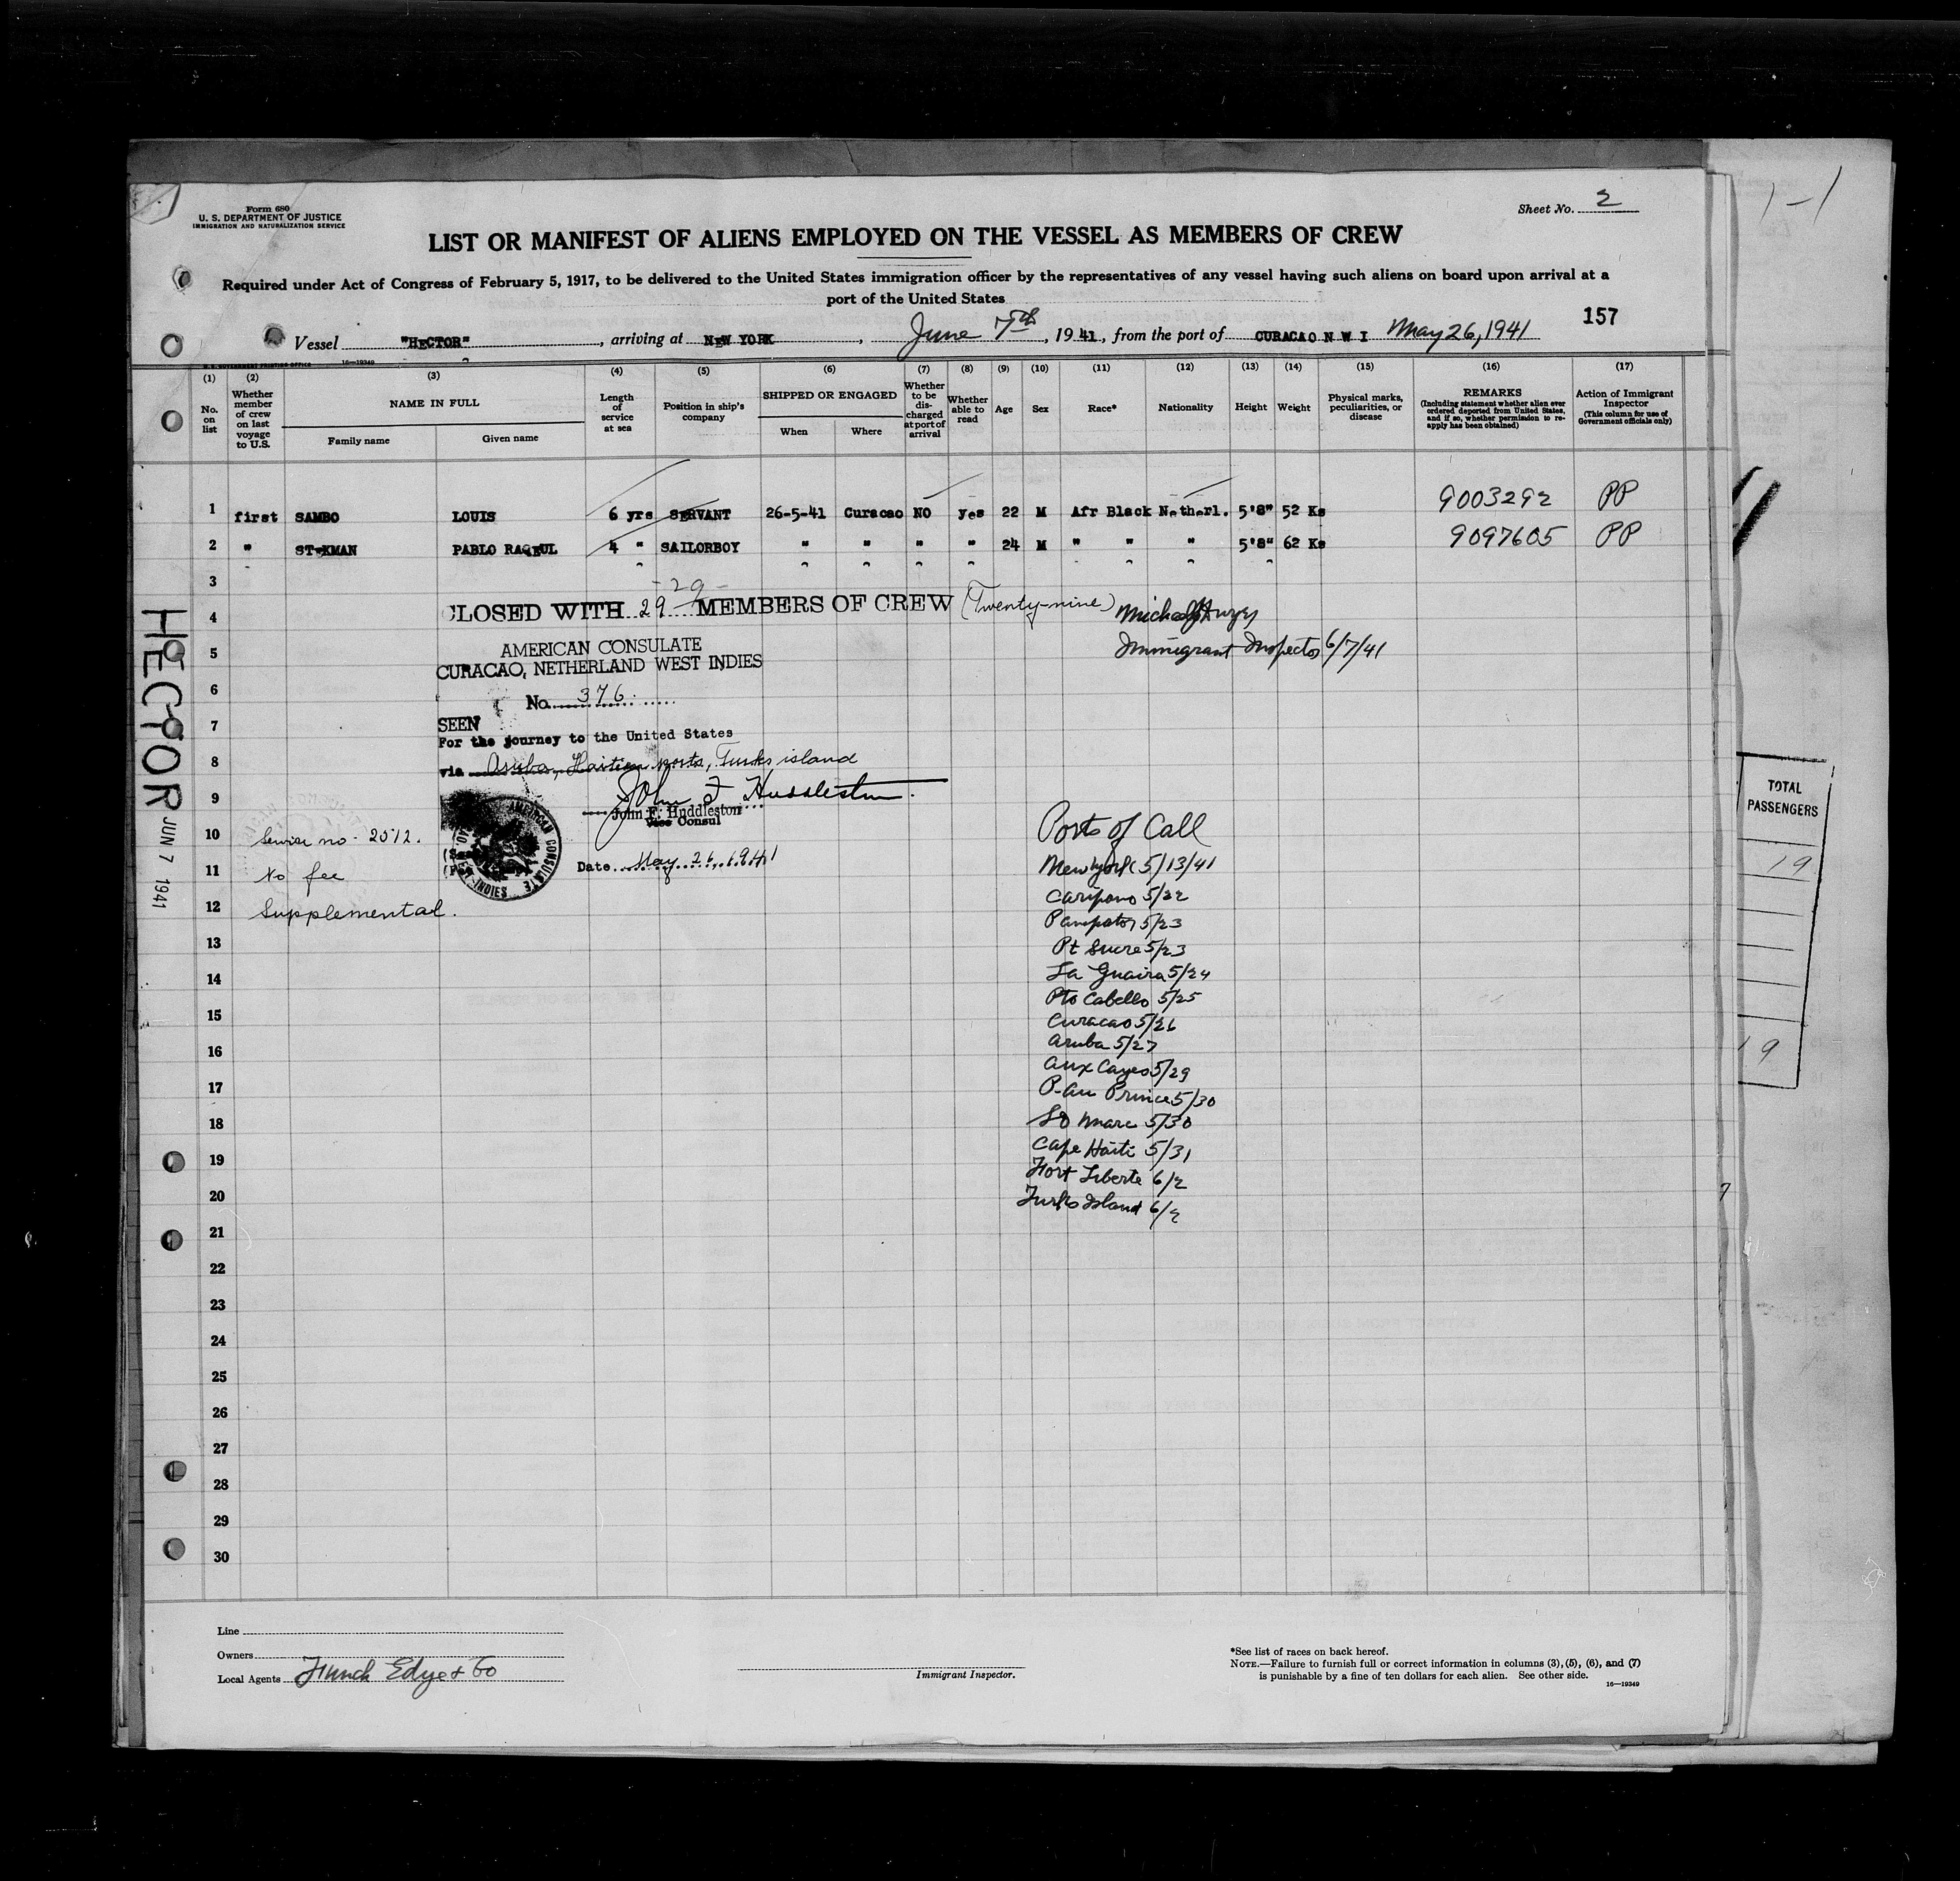 Form 680
U. S. DEPARTMENT OF JUSTICE
IMMIGRATION AND NATURALIZATION SERVICE
Sheet No. 2
LIST OR MANIFEST OF ALIENS EMPLOYED ON THE VESSEL AS MEMBERS OF CREW
Required under Act of Congress of February 5, 1917, to be delivered to the United States immigration officer by the representatives of any vessel having such aliens on board upon arrival at a
port of the United States
157
Vessel "HECTOR", arriving at NEW YORK, June 7th, 1941, from the port of CURACAO N W I May 26, 1941
U.S. GOVERNMENT PRINTING OFFICE 16—19349
(1) (2) (3) (4) (5) (6) (7) (8) (9) (10) (11) (12) (13) (14) (15) (16) (17)
No. on list
Whether member of crew on last voyage to U.S.
NAME IN FULL
Family name
Given name
Length of service at sea
Position in ship's company
SHIPPED OR ENGAGED
When
Where
Whether to be discharged at port of arrival
Whether able to read
Age
Sex
Race*
Nationality
Height
Weight
Physical marks, peculiarities, or disease
REMARKS
(Including statement whether alien ever ordered deported from United States, and if so, whether permission to reapply has been obtained)
Action of Immigrant Inspector
(This column for use of Government officials only)
1 first SAMBO LOUIS 6 yrs SERVANT 26-5-41 Curacao NO yes 22 M Afr Black Netherl. 5'8" 52 Ks 9003292 PP
2 " STEKMAN PABLO RAQEUL 4 " SAILORBOY " " " " 24 M " " " 5'8" 62 Ks 9097605 PP
3
-29-
4 CLOSED WITH 29 MEMBERS OF CREW (Twenty-nine)
5 Immigrant Inspector 6/7/41
AMERICAN CONSULATE
CURACAO, NETHERLAND WEST INDIES
6
No. 376
7 SEEN
For the journey to the United States
8 via Aruba, Haitian ports, Turks island
9 John F. Huddleston
John F. Huddleston
Vice Consul
AMERICAN CONSULATE
INDIES
10 Service no - 2512.
Date May 26, 1941
11 No fee
12 Supplemental.
Ports of Call
New York 5/13/41
Caripono 5/22
Pampatar 5/23
13 Pt Sucre 5/23
14 La Guaira 5/24
Pto Cabello 5/25
15 Curacao 5/26
16 Aruba 5/27
Aux Cayes 5/29
17 P-au Prince 5/30
18 St Marc 5/30
19 Cape Haiti 5/31
Fort Liberte 6/2
20 Turks Island 6/2
21
22
23
24
25
26
27
28
29
30
HECTOR
JUN 7 1941
Line
Owners
Local Agents Funch Edye & Co
Immigrant Inspector.
*See list of races on back hereof.
NOTE.—Failure to furnish full or correct information in columns (3), (5), (6), and (7)
is punishable by a fine of ten dollars for each alien. See other side.
16—19349
1-1
TOTAL
PASSENGERS
19
19
7